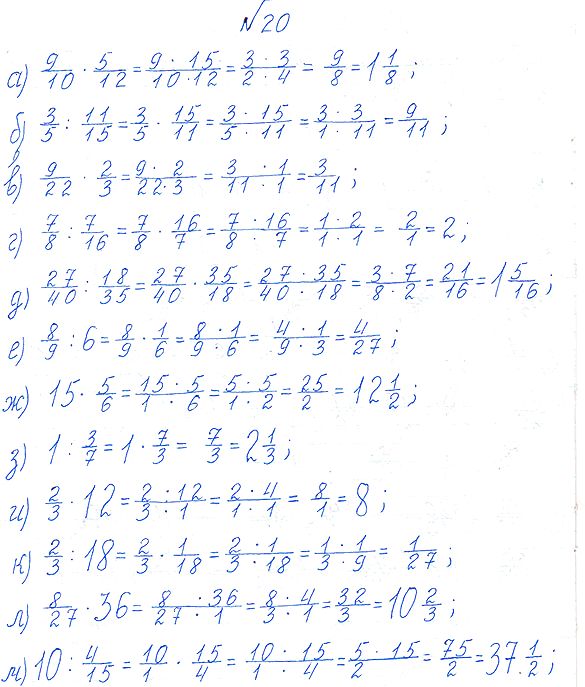 №20
а) 9/10 · 5/12 = 9 · 15/10 · 12 = 3 · 3/2 · 4 = 9/8 = 1 1/8 ;
б) 3/5 : 11/15 = 3/5 · 15/11 = 3 · 15/5 · 11 = 3 · 3/1 · 11 = 9/11 ;
в) 9/22 · 2/3 = 9 · 2/22 · 3 = 3 · 1/11 · 1 = 3/11 ;
г) 7/8 : 7/16 = 7/8 · 16/7 = 7 · 16/8 · 7 = 1 · 2/1 · 1 = 2/1 = 2 ;
д) 27/40 : 18/35 = 27/40 · 35/18 = 27 · 35/40 · 18 = 3 · 7/8 · 2 = 21/16 = 1 5/16 ;
е) 8/9 : 6 = 8/9 · 1/6 = 8 · 1/9 · 6 = 4 · 1/9 · 3 = 4/27 ;
ж) 15 · 5/6 = 15 · 5/1 · 6 = 5 · 5/1 · 2 = 25/2 = 12 1/2 ;
з) 1 : 3/7 = 1 · 7/3 = 7/3 = 2 1/3 ;
и) 2/3 · 12 = 2 · 12/3 · 1 = 2 · 4/1 · 1 = 8/1 = 8 ;
к) 2/3 : 18 = 2/3 · 1/18 = 2 · 1/3 · 18 = 1 · 1/3 · 9 = 1/27 ;
л) 8/27 · 36 = 8 · 36/27 · 1 = 8 · 4/3 · 1 = 32/3 = 10 2/3 ;
м) 10 : 4/15 = 10/1 · 15/4 = 10 · 15/1 · 4 = 5 · 15/2 = 75/2 = 37 1/2 ;